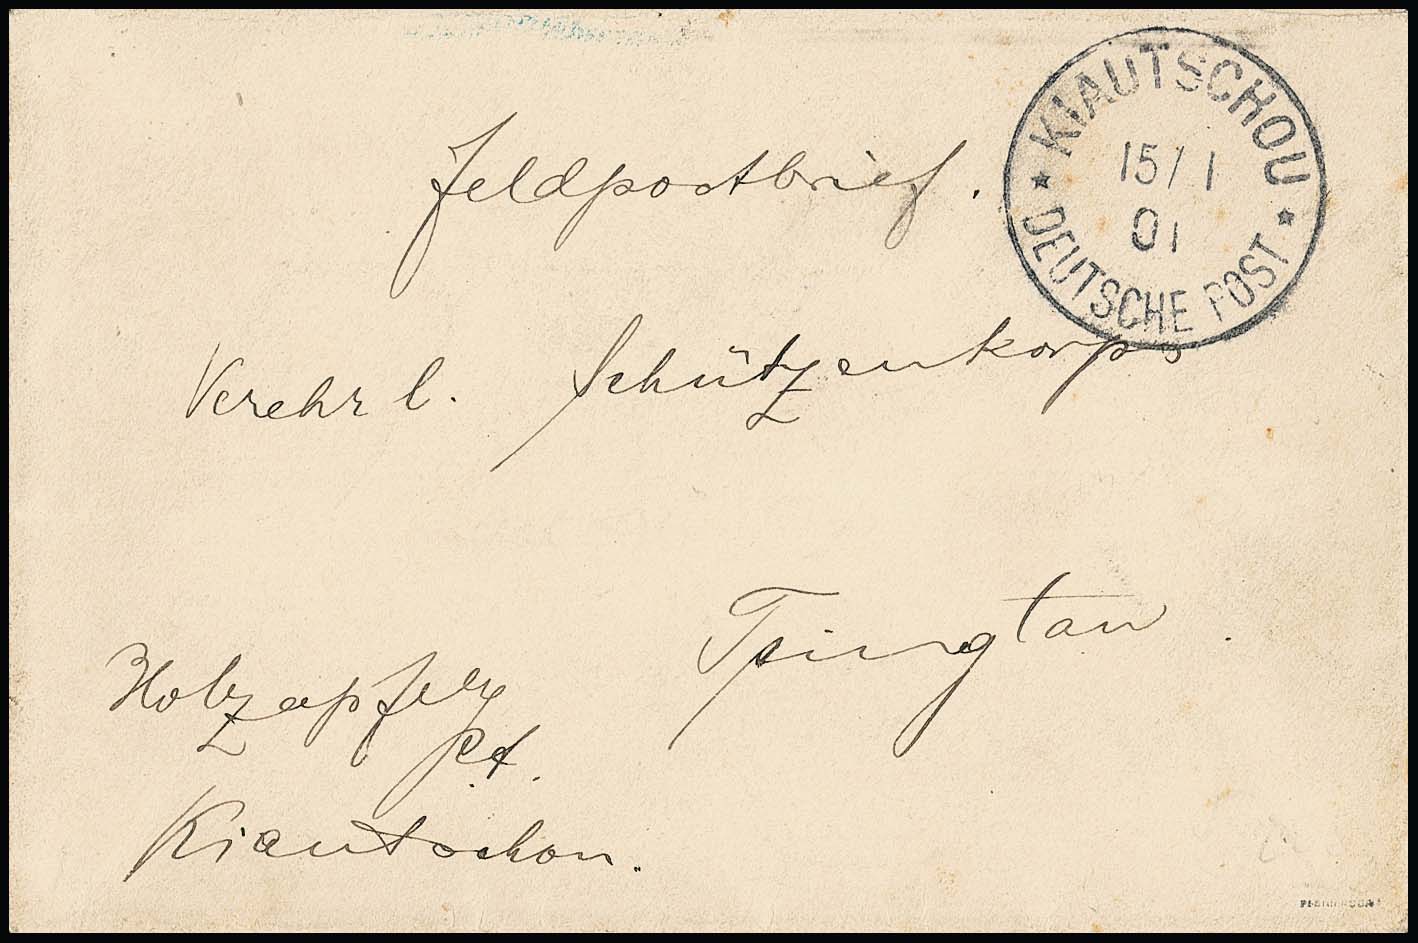 KIAUTSCHOU
15/1
01
DEUTSCHE POST
Feldpostbrief.
Verehrl. Schützenkorps
Tsingtau.
Holzapfel
Kiautschou.